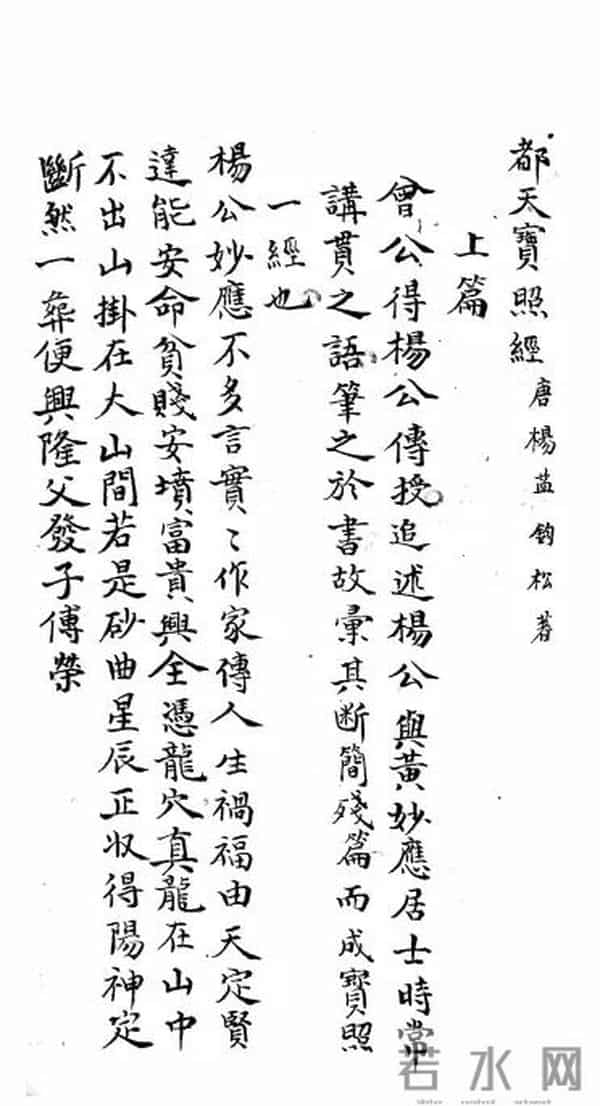 都天寶照經 唐 楊益 鈞松 著
上篇
曾公得楊公傳授追述楊公與黃妙應居士時常
講貫之語筆之於書故彙其断簡殘篇而成寶照
一經也
楊公妙應不多言實〻作家傳人生禍福由天定賢
達能安命貧賤安墳富貴興全憑龍穴真龍在山中
不出山掛在大山間若是砂曲星辰正収得陽神定
斷然一葬便興隆父發子傳榮
若水网